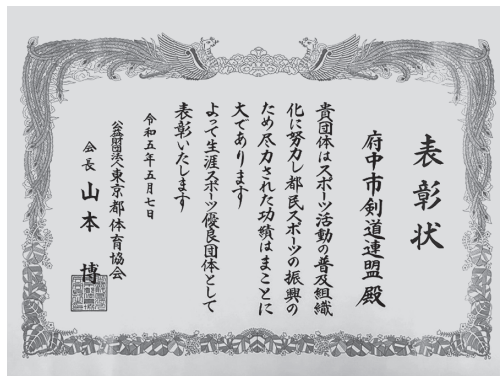 表彰状
府中市剣道連盟 殿
貴団体はスポーツ活動の普及組織
化に努力し都民スポーツの振興の
ため尽力された功績はまことに
大であります
よって生涯スポーツ優良団体として
表彰いたします
令和五年五月七日
公益財団法人東京都体育協会
会長 山本 博